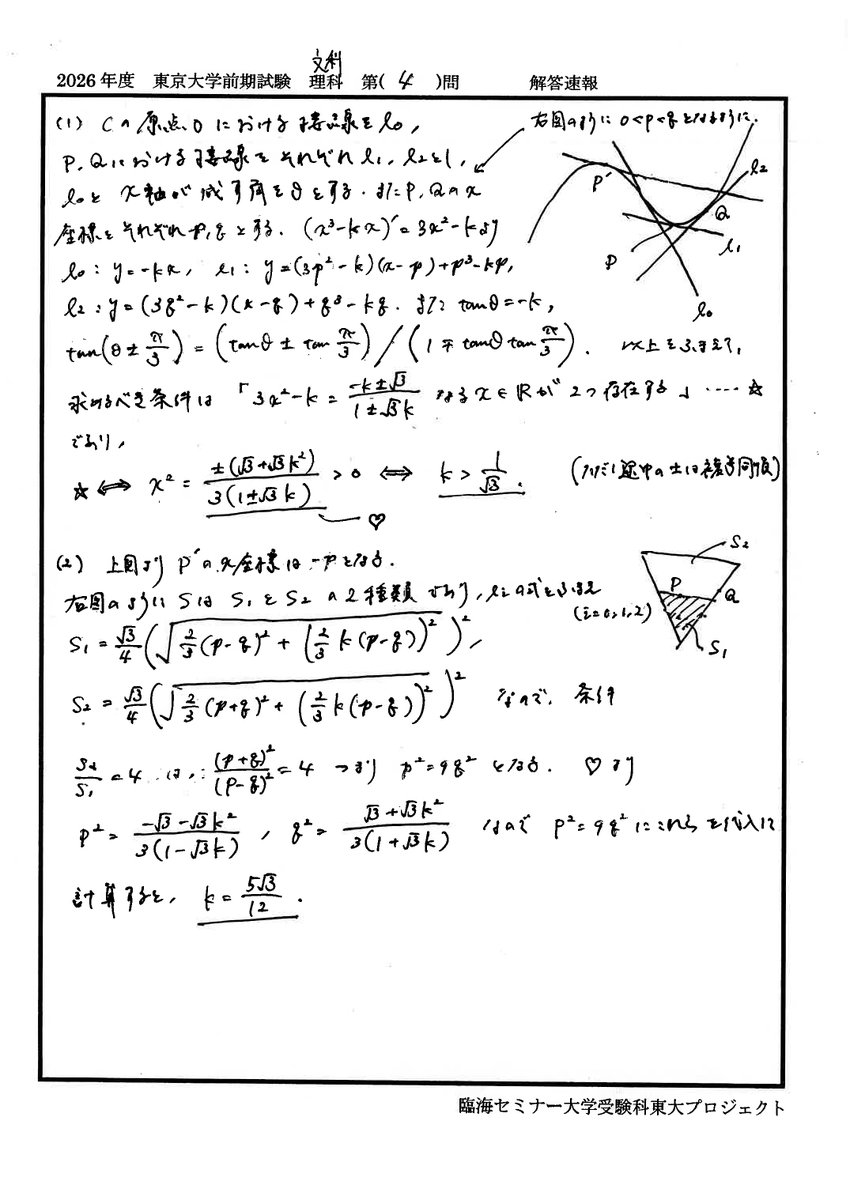 文科
2026年度 東京大学前期試験 理科 第( 4 )問 解答速報
(1) Cの原点Oにおける接線をl₀,
右図のように0<p<qとなるように.
P,Qにおける接線をそれぞれl₁, l₂とし,
l₀とx軸が成す角をθとする. またP,Qのx
座標をそれぞれp,qとする. (x³-kx)'=3x²-kより
l₀: y=-kx, l₁: y=(3p²-k)(x-p)+p³-kp,
l₂: y=(3q²-k)(x-q)+q³-kq. また tanθ=-k,
tan(θ±π/3) = (tanθ ± tan π/3) / (1 ∓ tanθ tan π/3). 以上をふまえて,
求めるべき条件は「3x²-k = (-k±√3)/(1±√3k) なるx∈ℝが2つ存在する」 ‥‥☆
であり,
☆ ⟺ x² = ±(√3+√3k²)/3(1±√3k) > 0 ⟺ k > 1/√3. (ただし途中の±は複号同順)
♡
P' l₂ Q l₁ P l₀
(2) 上図より P'のx座標は-pとなる.
右図のようにSはS₁とS₂の2種類であり, lᵢの式をふまえ
(i=0,1,2)
S₂ P Q S₁
S₁ = √3/4 (√(2/3(p-q)²+(2/3 k(p-q))²))²,
S₂ = √3/4 (√(2/3(p+q)²+(2/3 k(p-q))²))² なので, 条件
S₂/S₁=4 は, (p+q)²/(p-q)²=4 つまり p²=9q² となる. ♡より
p² = (-√3-√3k²)/3(1-√3k), q² = (√3+√3k²)/3(1+√3k) なので p²=9q²にこれらを代入して
計算すると, k = 5√3/12.
臨海セミナー大学受験科東大プロジェクト